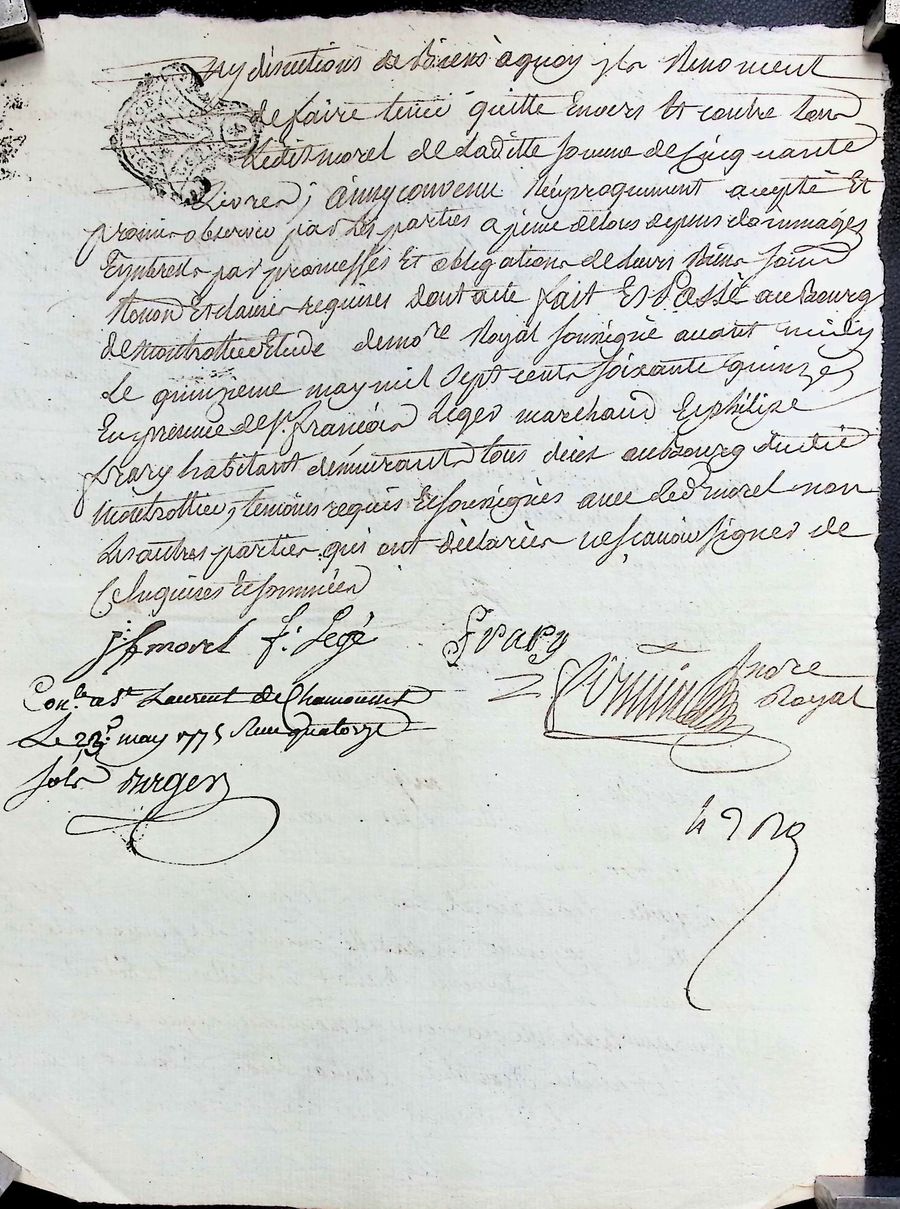 ny discutions de biens a quoy ils Renoncent
de faire tenir quitte Envers Et contre tous
Ledit morel de Laditte somme de Cinquante
Livres, ainsy convenu Reciproquement accepté Et
promis observer par Les parties a peine de tous depens dommages
Interets par promesses Et obligations de Leurs Biens
Renon Et clauses requises dont acte fait Et Passé au Bourg
de montrottier Etude de no.re Royal soussigné avant midy
Le quinzieme may mil sept cents soixante quinze
En presence de s.r françois Leger marchand Et philipe
frary habitant demeurants tous deux au bourg dudit
Montrottier, temoins requis Et soussignes avec Led. morel non
Les autres parties qui ont déclarées ne sçavoir signer de
Ce Enquises Et sommées
j: f morel f: Legé frary
Con.lé a S.t Laurent de Chamousset
Le 23 may 1775 Reçu quatorze
sols Berger
no.re
Royal